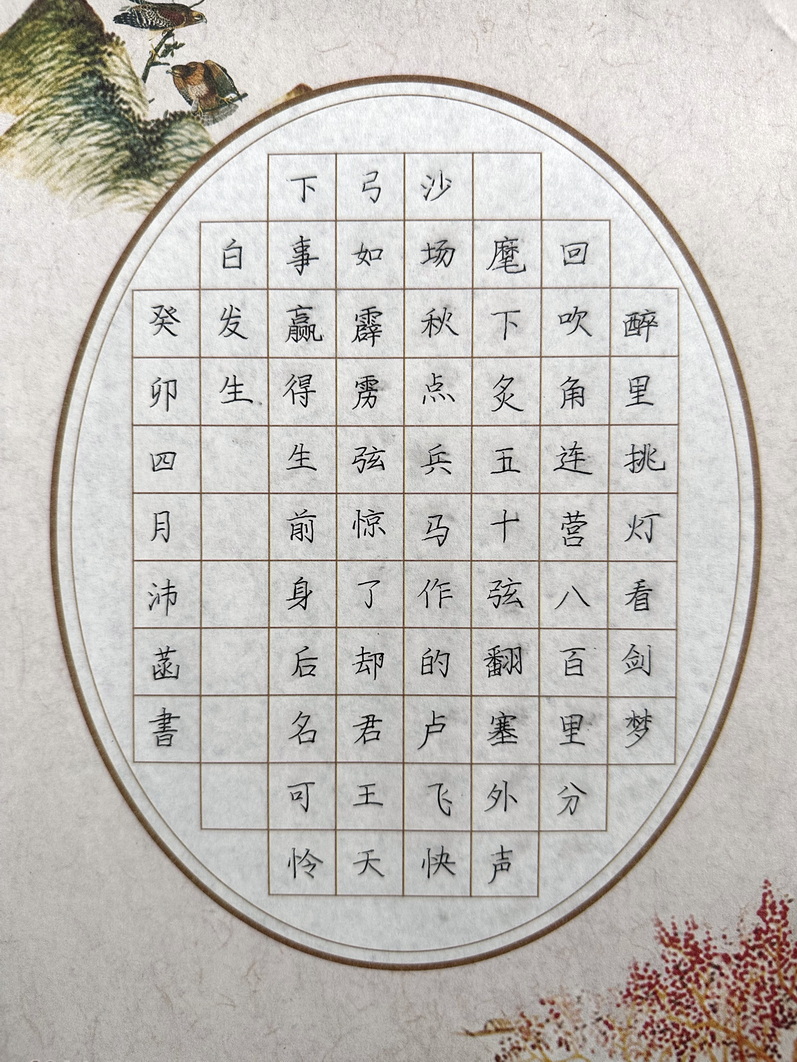 醉里挑灯看剑梦
回吹角连营八百里分
麾下炙五十弦翻塞外声
沙场秋点兵马作的卢飞快
弓如霹雳弦惊了却君王天
下事赢得生前身后名可怜
白发生
癸卯四月沛菡書